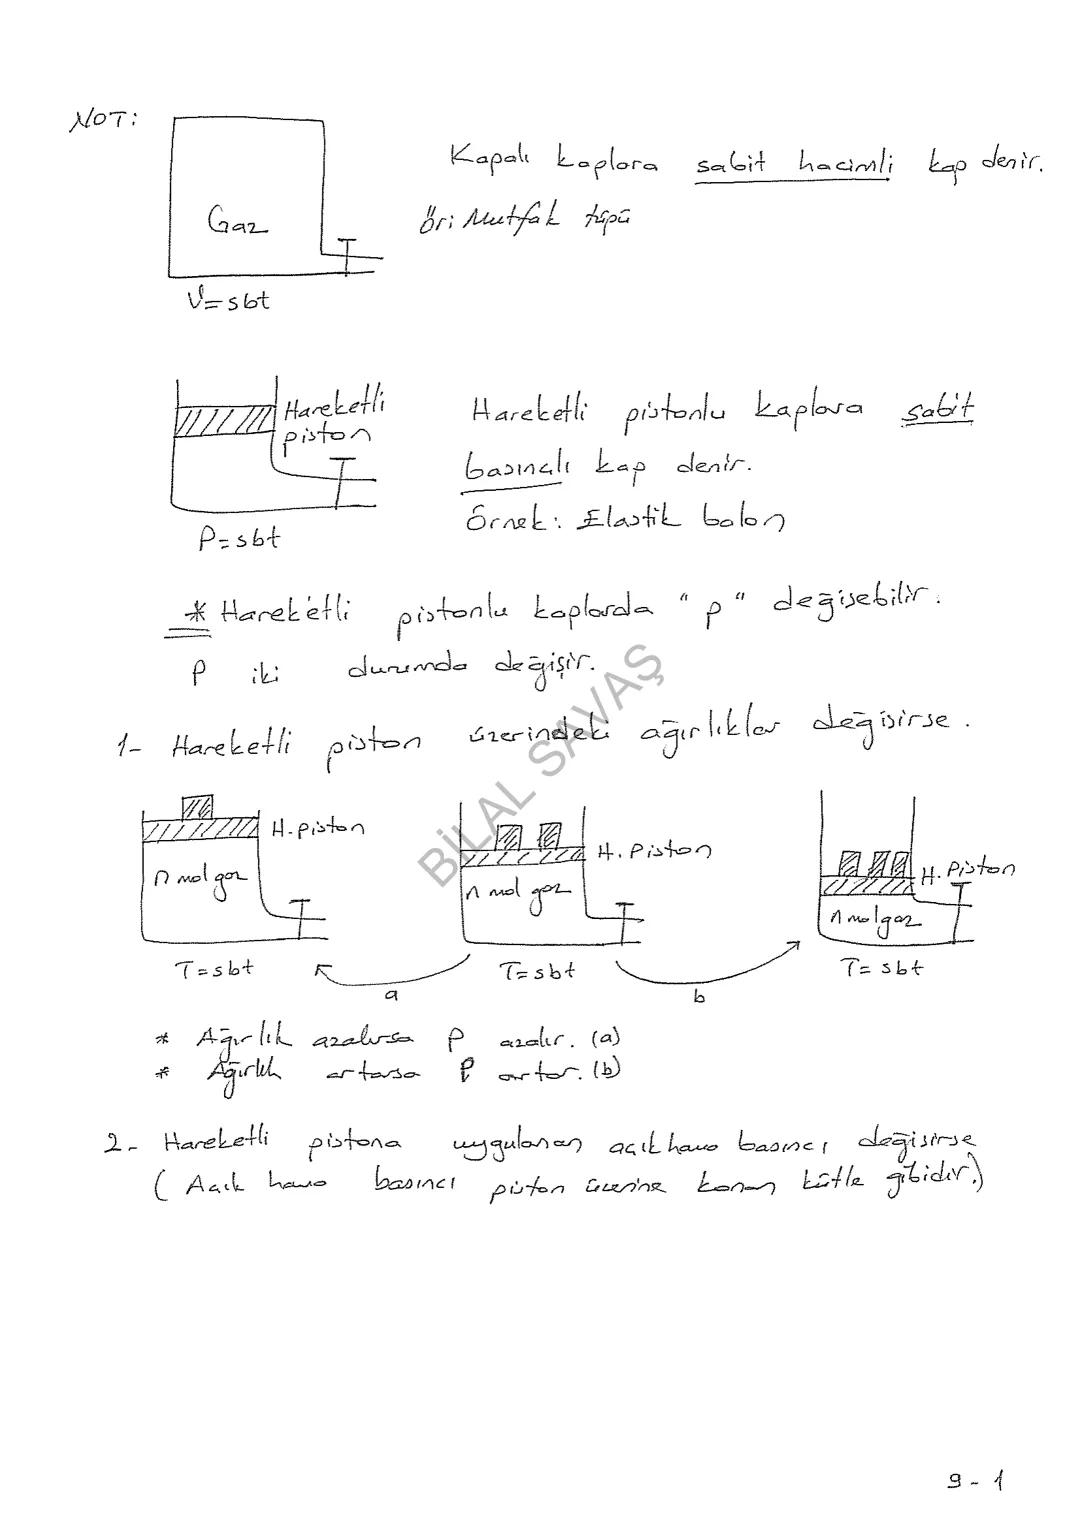 NOT:
Kapalı kaplara sabit hacimli kap denir.
Gaz
Ör: Mutfak tüpü
V=sbt
Hareketli
piston
Hareketli pistonlu kaplara sabit
basınçlı kap denir.
Örnek: Elastik balon
P=sbt
* Hareketli pistonlu kaplarda "p" değişebilir.
P iki durumda değişir.
1- Hareketli piston üzerindeki ağırlıklar değişirse.
H.piston
H. Piston
H. Piston
n mol gaz
n mol gaz
n mol gaz
T=sbt
T=sbt
T=sbt
a
b
* Ağırlık azalırsa P azalır. (a)
* Ağırlık artarsa P artar. (b)
2- Hareketli pistona uygulanan açık hava basıncı değişirse
(Açık hava basıncı piston üzerine konan kütle gibidir.)
BİLAL SAVAŞ
9-1